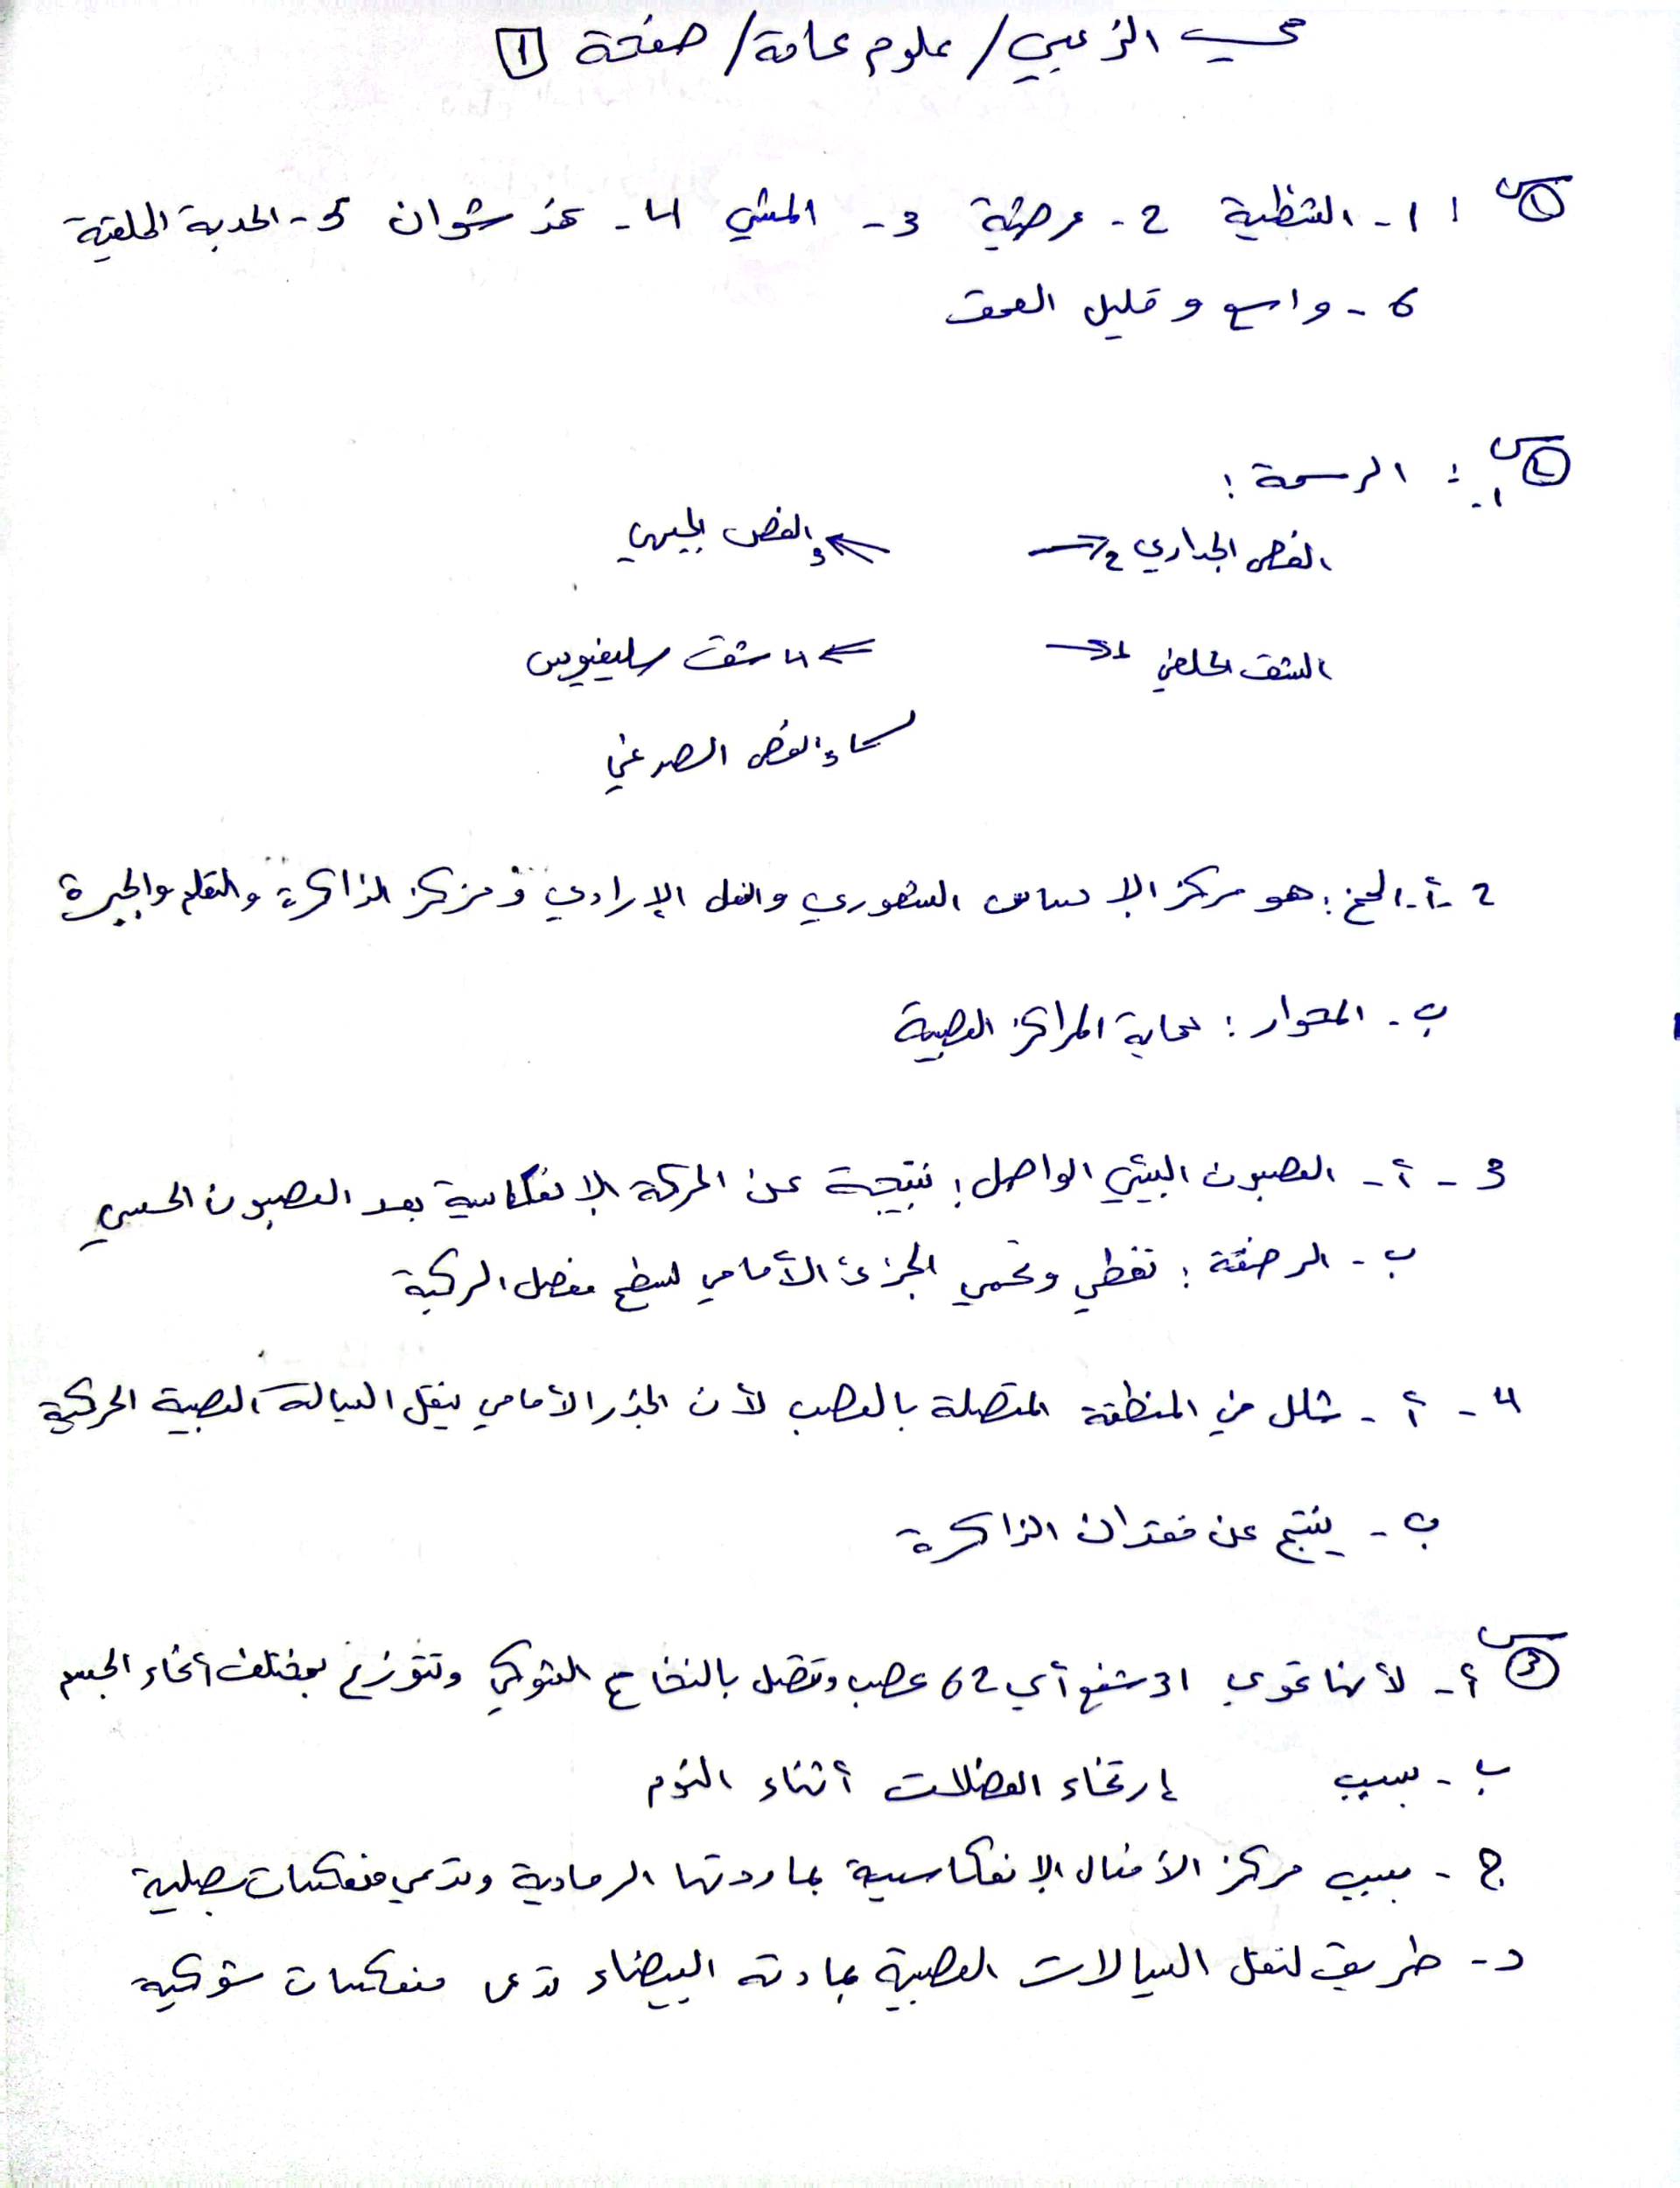 الزعبي / علوم عامة / صفحة 1
س1: 1- الشظية 2- عرضية 3- المشي 4- غمد شوان 5- الحدبة الحلقية
6- واسع وقليل العمق
س2: 1- الرسمة:
الفص الجداري 2 3 الفص الجبهي
الشق الخلفي 1 4 شق سيلفيوس
5 الفص الصدغي
2- أ- المخ: هو مركز الإحساس الشعوري والفعل الإرادي ومركز الذاكرة والتعلم والخبرة
ب- المحوار: حماية المراكز العصبية
3- أ- العصبون البيني الواصل: نتيجة عن الحركة الإنعكاسية بعد العصبون الحسي
ب- الرضفة: تغطي وتحمي الجزء الأمامي لسطح مفصل الركبة
4- أ- شلل في المنطقة المتصلة بالعصب لأن الجذر الأمامي ينقل السيالة العصبية الحركية
ب- ينتج عن فقدان الذاكرة
س3 أ- لأنها تحوي 31 شفع أي 62 عصب وتتصل بالنخاع الشوكي وتتوزع بمختلف أنحاء الجسم
ب- بسبب إرتخاء العضلات أثناء النوم
ج- بسبب مركز الأفعال الإنعكاسية بمادتها الرمادية وتدعى منعكسات بصلية
د- طريق لنقل السيالات العصبية بمادته البيضاء تدعى منعكسات شوكية